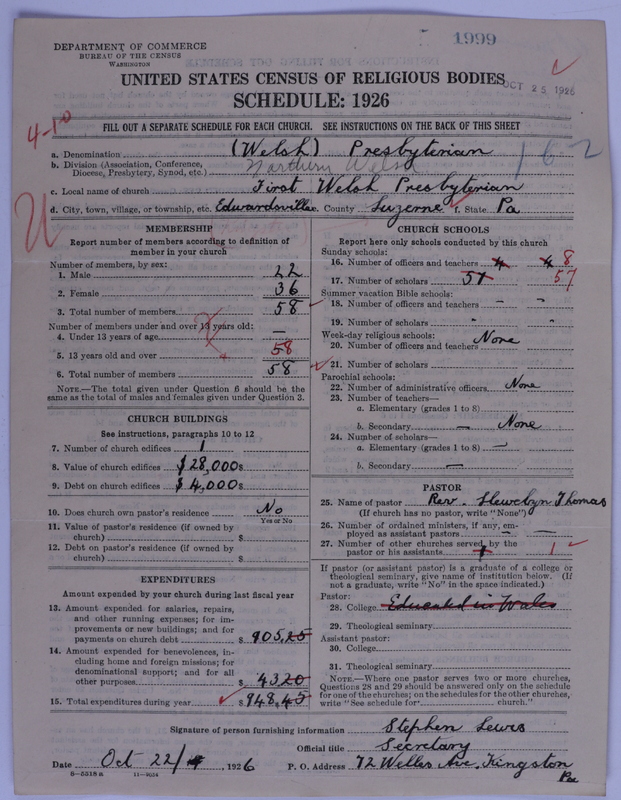 1999
DEPARTMENT OF COMMERCE
BUREAU OF THE CENSUS
WASHINGTON
UNITED STATES CENSUS OF RELIGIOUS BODIES
OCT 25 1926
SCHEDULE: 1926
4-10
FILL OUT A SEPARATE SCHEDULE FOR EACH CHURCH. SEE INSTRUCTIONS ON THE BACK OF THIS SHEET
a. Denomination (Welsh) Presbyterian
162
b. Division (Association, Conference, Diocese, Presbytery, Synod, etc.) Northern Welsh
c. Local name of church First Welsh Presbyterian
d. City, town, village, or township, etc. Edwardsville e. County Luzerne f. State Pa
MEMBERSHIP
Report number of members according to definition of member in your church
Number of members, by sex:
1. Male 22
2. Female 36
3. Total number of members 58
Number of members under and over 13 years old:
4. Under 13 years of age —
5. 13 years old and over 58
6. Total number of members 58
NOTE.—The total given under Question 6 should be the same as the total of males and females given under Question 3.
CHURCH BUILDINGS
See instructions, paragraphs 10 to 12
7. Number of church edifices 1
8. Value of church edifices $28,000 $
9. Debt on church edifices $4,000 $
10. Does church own pastor's residence No
Yes or No
11. Value of pastor's residence (if owned by church) $
12. Debt on pastor's residence (if owned by church) $
EXPENDITURES
Amount expended by your church during last fiscal year
13. Amount expended for salaries, repairs, and other running expenses; for improvements or new buildings; and for payments on church debt $ 905,25
14. Amount expended for benevolences, including home and foreign missions; for denominational support; and for all other purposes $ 4320
15. Total expenditures during year $ 948,45
CHURCH SCHOOLS
Report here only schools conducted by this church
Sunday schools:
16. Number of officers and teachers 4 4 8
17. Number of scholars 57 57
Summer vacation Bible schools:
18. Number of officers and teachers - -
19. Number of scholars " "
Week-day religious schools:
20. Number of officers and teachers None
21. Number of scholars
Parochial schools:
22. Number of administrative officers None
23. Number of teachers—
a. Elementary (grades 1 to 8)
b. Secondary — None
24. Number of scholars—
a. Elementary (grades 1 to 8) —
b. Secondary —
PASTOR
25. Name of pastor Rev. Llewelyn Thomas
(If church has no pastor, write "None")
26. Number of ordained ministers, if any, employed as assistant pastors — —
27. Number of other churches served by the pastor or his assistants 1 1
If pastor (or assistant pastor) is a graduate of a college or theological seminary, give name of institution below. (If not a graduate, write "No" in the space indicated.)
Pastor:
28. College Educated in Wales
29. Theological seminary
Assistant pastor:
30. College
31. Theological seminary
NOTE.—Where one pastor serves two or more churches, Questions 28 and 29 should be answered only on the schedule for one of the churches; on the schedules for the other churches, write "See schedule for church."
Signature of person furnishing information Stephen Lewis
Official title Secretary
Date Oct 22/ 1926 P. O. Address 72 Welles Ave. Kingston Pa
8-5518 a 11-9034